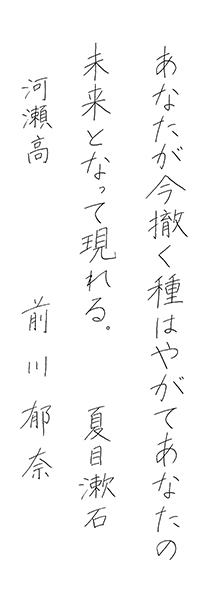 あなたが今撤く種はやがてあなたの
未来となって現れる。 夏目漱石
河瀬高 前川郁奈